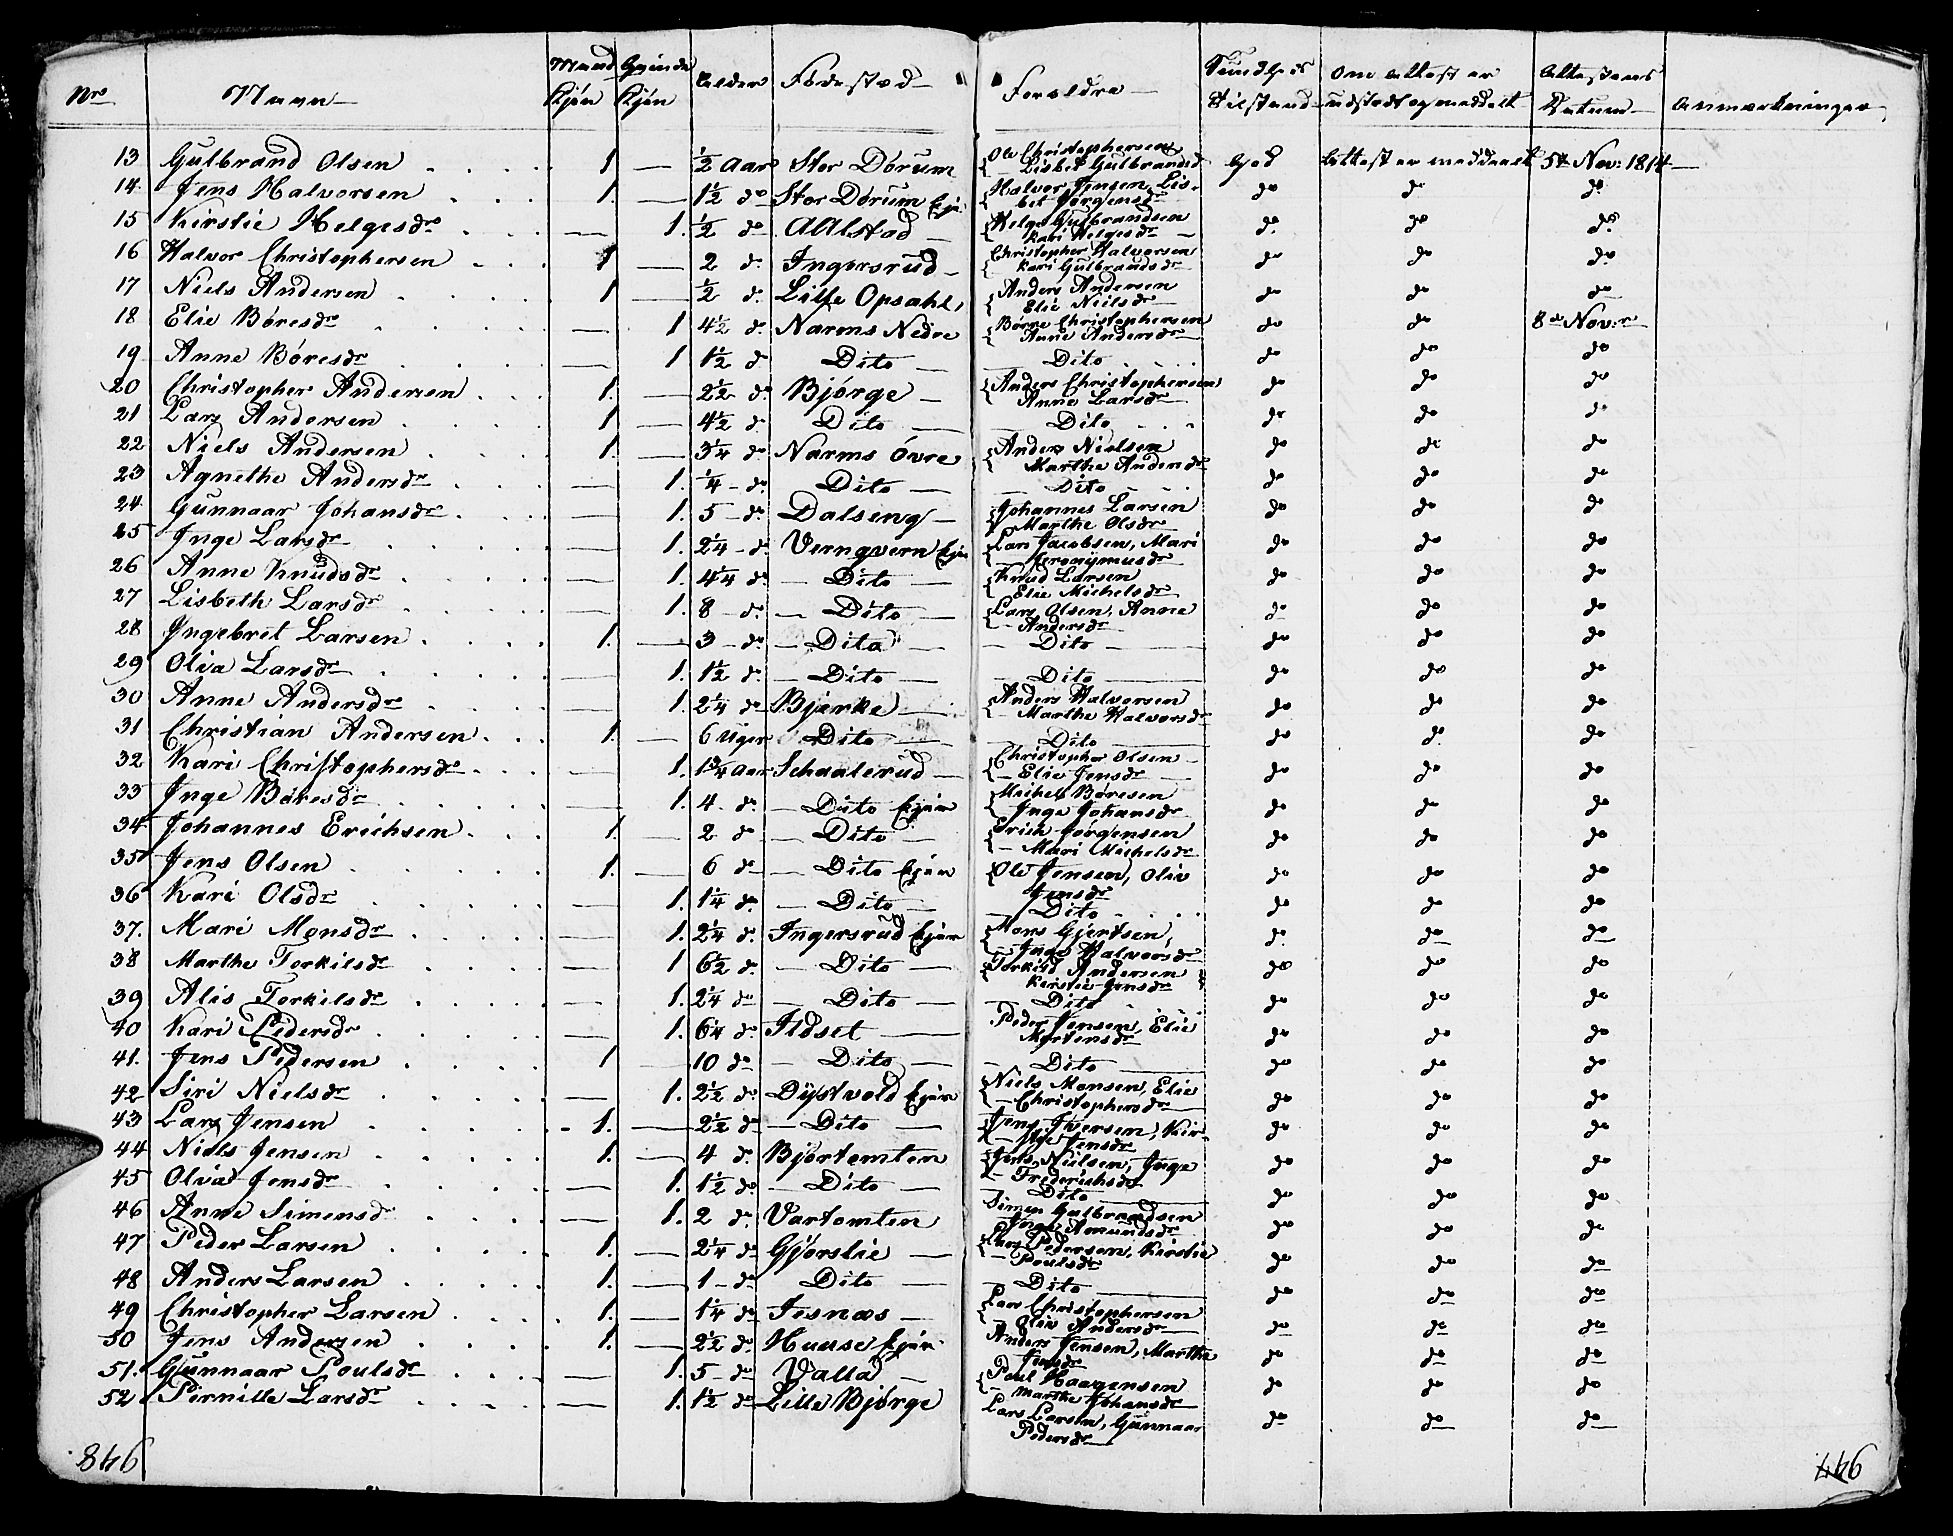 Nro Navn Mand Kjøn Qvinde Kjøn Alder Fødested Forældre Sundheds Tilstand Om Attest er udstædt og meddelt Attestens Datum Anmærkninger
13 Gulbrand Olsen 1 — ½ Aar Stor Dørum Ole Christophersen Lisbet Gulbrandsd God Attest er meddeelt 5te Nov: 1814
14 Jens Halvorsen 1. — 1½ do Stor Dørum Ejer Halvor Jensen, Lisbet Jørgensdr do do do
15 Kirstie Helgesdr — 1. ½ do Alstad Helge Gulbrandsen Kari Helgesdr do do do
16 Halvor Christophersen 1 — 2 do Ingersrud Christopher Halvorsen Kari Gulbrandsdr do do do
17 Niels Andersen 1 — ½ do Lille Opsahl Anders Andersen Elie Nielsdr do do do
18 Elie Børesdr — 1 4½ do Narms Nedre Børre Christophersen Anne Andersdr do do 8de Nov:r
19 Anne Børesdr — 1 1½ do Dito Dito do do do
20 Christopher Andersen 1. — 2½ do Bjørge Anders Christophersen Anne Larsdr do do do
21 Lars Andersen 1 — 4½ do Dito Dito do do do
22 Niels Andersen 1. — ¾ do Narms Øvre Anders Nielsen Marthe Andersdr do do do
23 Agnethe Andersdr — 1. ¼ do Dito Dito do do do
24 Gunnaar Johansdr — 1. 5 do Dalseng Johannes Larsen Marthe Olsdr do do do
25 Inge Larsdr — 1. 2¼ do Verngvern Lars Jacobsen, Mari Jeronymusdr do do do
26 Anne Knudsdr — 1. 4¼ do Dito Knud Larsen Elie Michelsdr do do do
27 Lisbeth Larsdr — 1. 8 do Dito Lars Olsen, Anne Andersdr do do do
28 Ingebret Larsen 1. — 3 do Dito Dito do do do
29 Olia Larsdr — 1. 1½ do Dito Dito do do do
30 Anne Andersdr — 1. 2¼ do Bjerke Anders Halvorsen Marthe Halvorsdr do do do
31 Christian Andersen 1. — 6 Uger Dito Dito do do do
32 Kari Christophersdr — 1. 1¾ Aar Schaalerud Christopher Olsen Elie Jensdr do do do
33 Inge Børesdr — 1. 4 do Dito Michel Børesen Inge Johansdr do do do
34 Johannes Erichsen 1. — 2 do Dito Erich Jørgensen Mari Michelsdr do do do
35 Jens Olsen 1. — 6 do Dito Ole Jensen, Oliv Jensdr do do do
36 Kari Olsdr — 1. 1¼ do Dito Dito do do do
37. Mari Monsdr — 1. 2¼ do Ingersrud Mons Gjertsen, Inge Halvorsdr do do do
38 Marthe Torkilsdr — 1 6½ do Dito Torkild Andersen Kirstie Jensdr do do do
39 Alis Torkilsdr — 1. 2¼ do Dito Dito do do do
40 Kari Pedersdr — 1. 6¼ do Ildset Peder Jensen, Elie Mortensdr do do do
41. Jens Pedersen 1 10 do Dito Dito do do do
42 Siri Nielsdr — 1. 2½ do Dystvold Niels Monsen, Elie Christophersdr do do do
43 Lars Jensen 1. — 2½ do Dito Jens Iversen, Kirstie Jensdr do do do
44 Niels Jensen 1. — 4 do Bjørtomten Jens Nielsen, Inge Frederichsdr do do do
45 Olva Jensdr — 1. 1½ do Dito Dito do do do
46 Anne Simensd — 1. 2 do Vartomten Simen Gulbrandsen Inge Amundsdr do do do
47 Peder Larsen 1. — 2¼ do Gjørslie Lars Pedersen, Kirstie Poulsdr do do do
48 Anders Larsen 1. — 1 do Dito Dito do do do
49 Christopher Larsen 1. — 1¼ do Jesnæs Lars Christophersen Oliv Andersdr do do do
50 Jens Andersen 1. — 2½ do Huuse Anders Jensen, Marthe Jensdr do do do
51. Gunnaar Poulsdr — 1. 5 do Valla Poul Haagensen Marthe Johansdr do do do
52 Pernille Larsdr — 1. 1½ do Lille Bjørge Lars Larsen, Gunnaar Pedersdr do do do
846